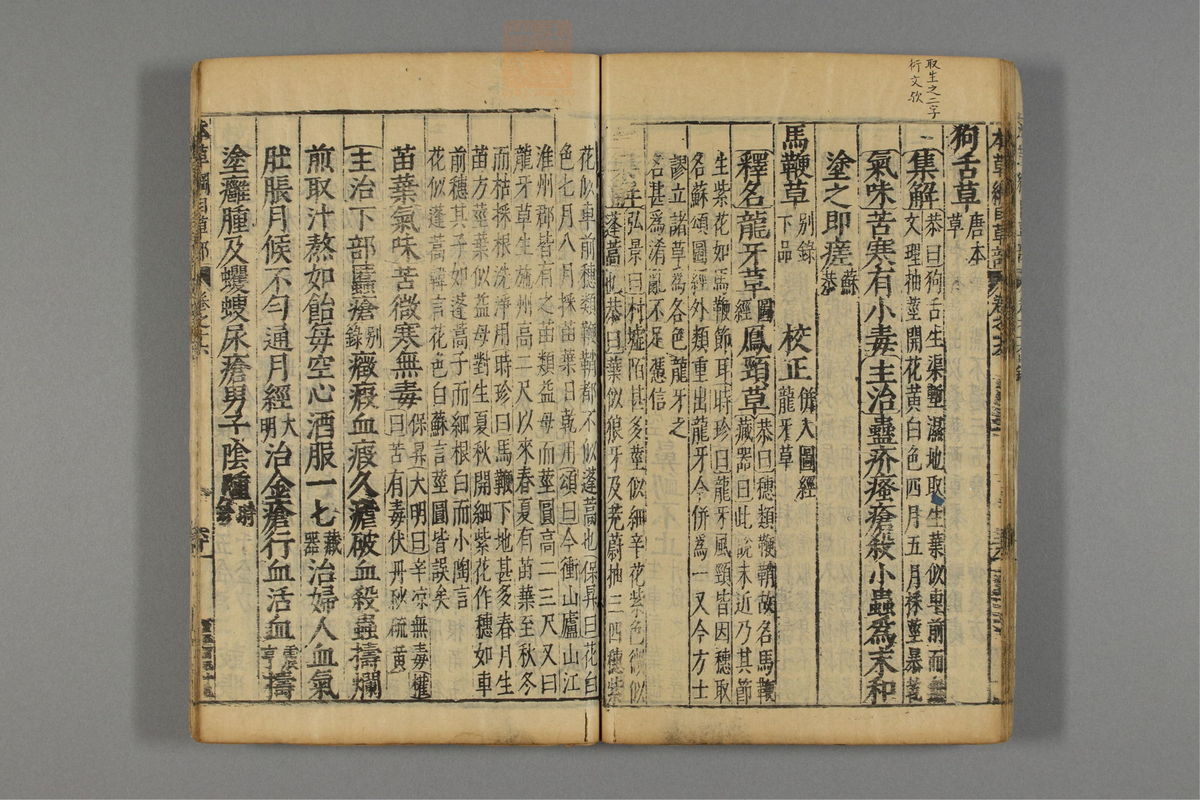 取生之二字
衍文歟
狗舌草唐本草
集解恭曰狗舌生渠塹濕地取生葉似車前而無
文理抽莖開花黃白色四月五月採莖暴乾
氣味苦寒有小毒主治蠱疥瘙瘡殺小蟲為末和
塗之即瘥蘇恭
馬鞭草別錄下品 校正併入圖經龍牙草
釋名龍牙草圖經鳳頸草恭曰穗類鞭鞘故名馬鞭藏器曰此說未近乃其節
生紫花如馬鞭節耳時珍曰龍牙風頸皆因穗取
名蘇頌圖經外類重出龍牙今併為一又今方士
謬立諸草為各色龍牙之
名甚為淆亂不足憑信
弘景曰村墟陌甚多莖似細辛花紫色微似
蓬蒿也恭曰葉似狼牙及茺蔚抽三四穗紫
花似車前穗類鞭鞘都不似蓬蒿也保昇曰花白
色七月八月採苗葉日乾用頌曰今衡山廬山江
淮州郡皆有之苗類益母而莖圓高二三尺又曰
龍牙草生施州高二尺以來春夏有苗葉至秋冬
而枯採根洗淨用時珍曰馬鞭下地甚多春月生
苗方莖葉似益母對生夏秋開細紫花作穗如車
前穗其子如蓬蒿子而細根白而小陶言
花似蓬蒿韓言花色白蘇言莖圓皆誤矣
苗葉氣味苦微寒無毒保昇曰苦有毒伏丹砂硫黃大明曰辛涼無毒權
主治下部䘌瘡別錄癥瘕血瘕久瘧破血殺蟲擣爛
煎取汁熬如飴每空心酒服一匕藏器治婦人血氣
肚脹月候不勻通月經大明治金瘡行血活血震亨擣
塗癰腫及蠼螋尿瘡男子陰腫時珍